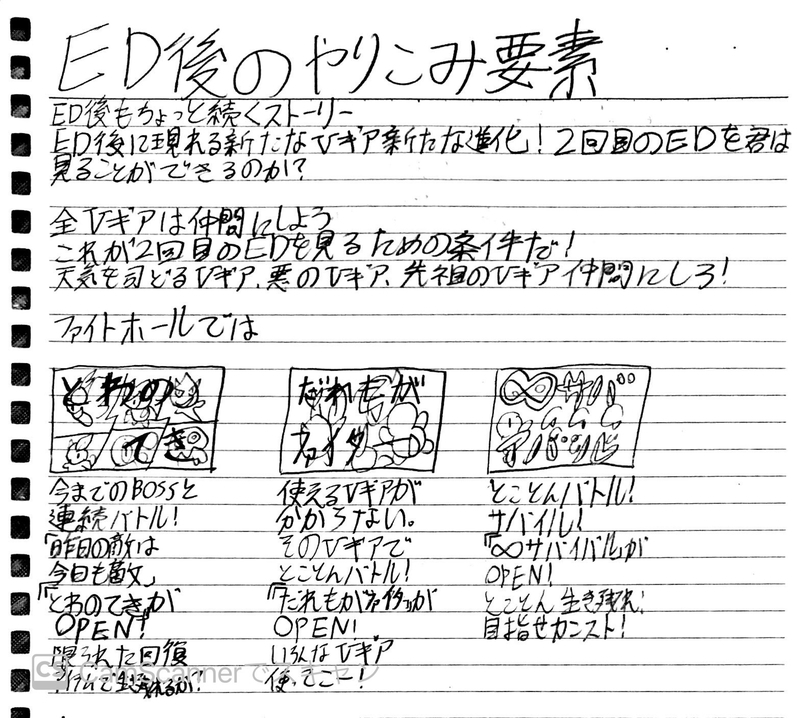 ED後のやりこみ要素
ED後もちょっと続くストーリー
ED後に現れる新たなVギア新たな進化!2回目のEDを君は
見ることができるのか?
全Vギアは仲間にしよう
これが2回目のEDを見るための条件だ!
天気を司どるVギア、悪のVギア、先祖のVギア仲間にしろ!
ファイトホールでは
とわの
てき
今までのBOSSと
連続バトル!
「昨日の敵は
今日も敵」
「とわのてきが
OPEN!
限られた回復
だれもが
ファイター
使えるVギアが
分からない。
そのVギアで
とことんバトル!
「だれもがファイターが
OPEN!
いろんなVギア
使いこー!
∞サバ
とことんバトル!
サバイル!
「∞サバイバルが
OPEN!
とことん生き残れ!
目指せカンスト!
CS CamScanner でスキャン